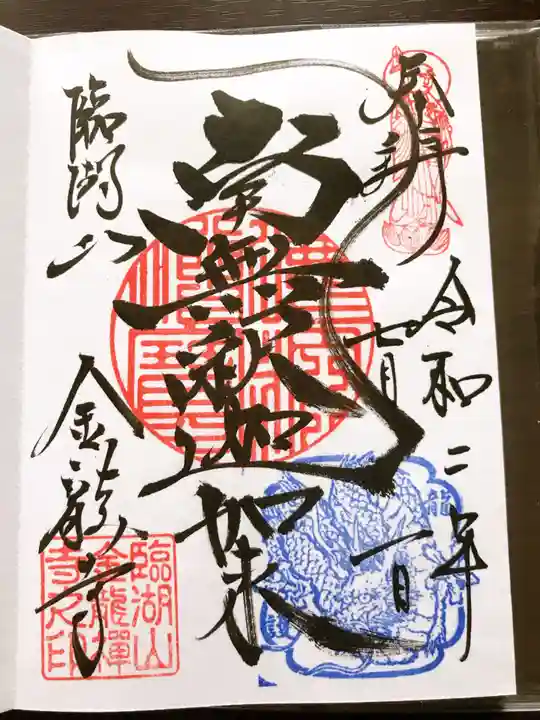 奉拝
令和二年
七月一日
南無釈迦如来
臨湖山
金龍寺
臨湖山
金龍禅
寺之印
龍
護